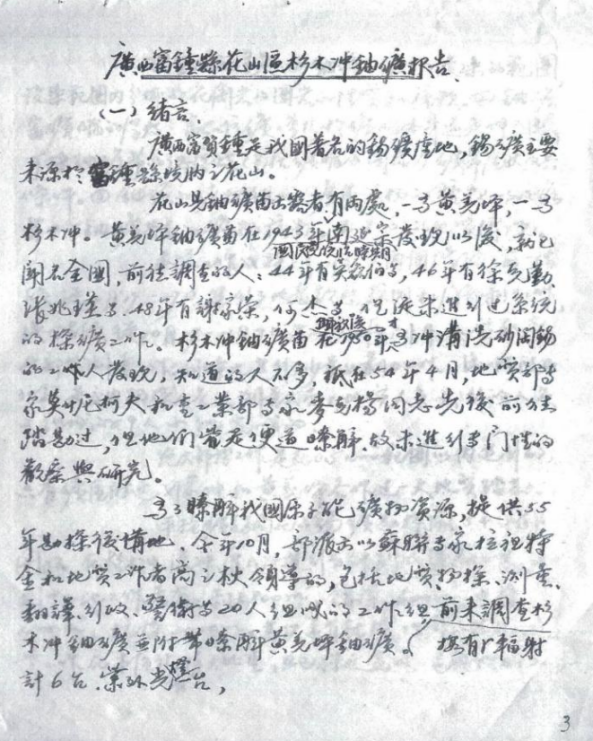 廣西富鍾縣花山區杉木冲鈾礦報告.
(一) 緒言.
廣西富賀鍾是我國著名的錫礦產地,錫礦主要
來源於富鍾縣境內之花山。
花山見鈾礦苗出露者有兩處,一爲黃羌坪,一爲
杉木冲。黃羌坪鈾礦苗在1943年南延宗發現以後,就已
國民党統治時期
聞名全國,前往調查的人:44年有吳磊伯等,46年有徐克勤、
張兆瑾等.48年有謝家榮,何杰等,但從未進行过系統
的探礦工作。杉木冲鈾礦苗在1950年才爲冲溝洗砂淘錫
解放後
的工作人發現,知道的人不多,祗在54年4月,地質部專
家莫 尼柯夫和重工業部專家麥 楊同志先後前往
踏勘过,但他們皆是便道瞭解.故未進行專門性的
觀察與研究。
爲了瞭解我國原子能礦物資源,提供55
年勘探後備地.今年10月,部派出以蘇聯專家拉祖特
金和地質工作者高之杕領導的,包括地質.物探、測量、
翻譯、行政、警衛等20人組成的工作組前來調查杉
木冲鈾礦並附帶瞭解黃羌坪鈾礦。携有γ輻射
計6台.紫外光燈 台,
3